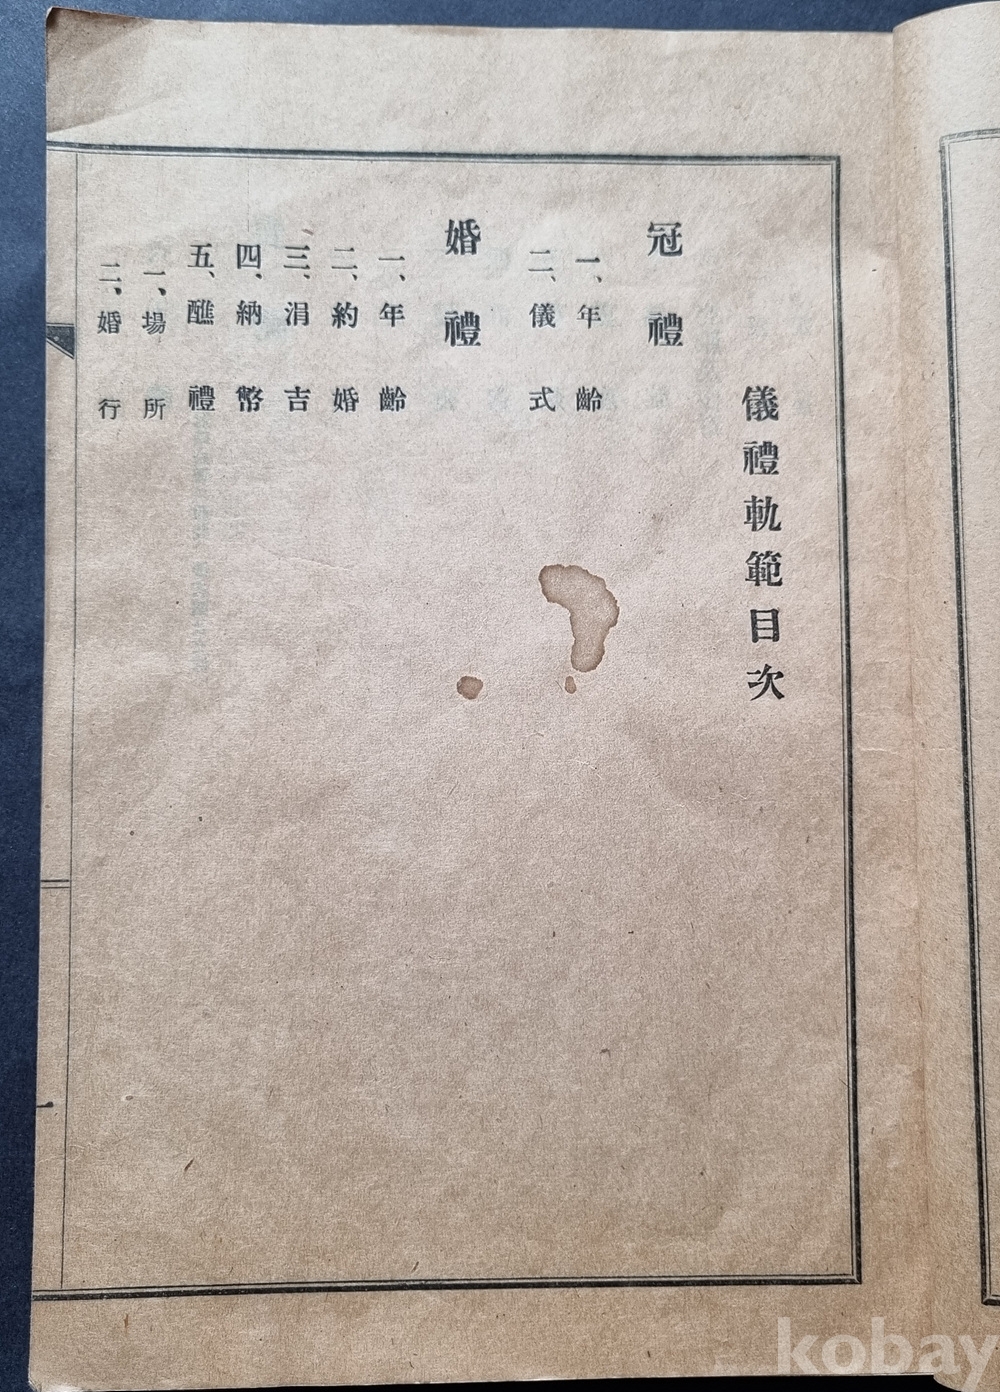 儀禮軌範目次
冠禮
一、年齡
二、儀式
婚禮
一、年齡
二、約婚
三、涓吉
四、納幣
五、醮禮
一、場所
二、婚行
kobay